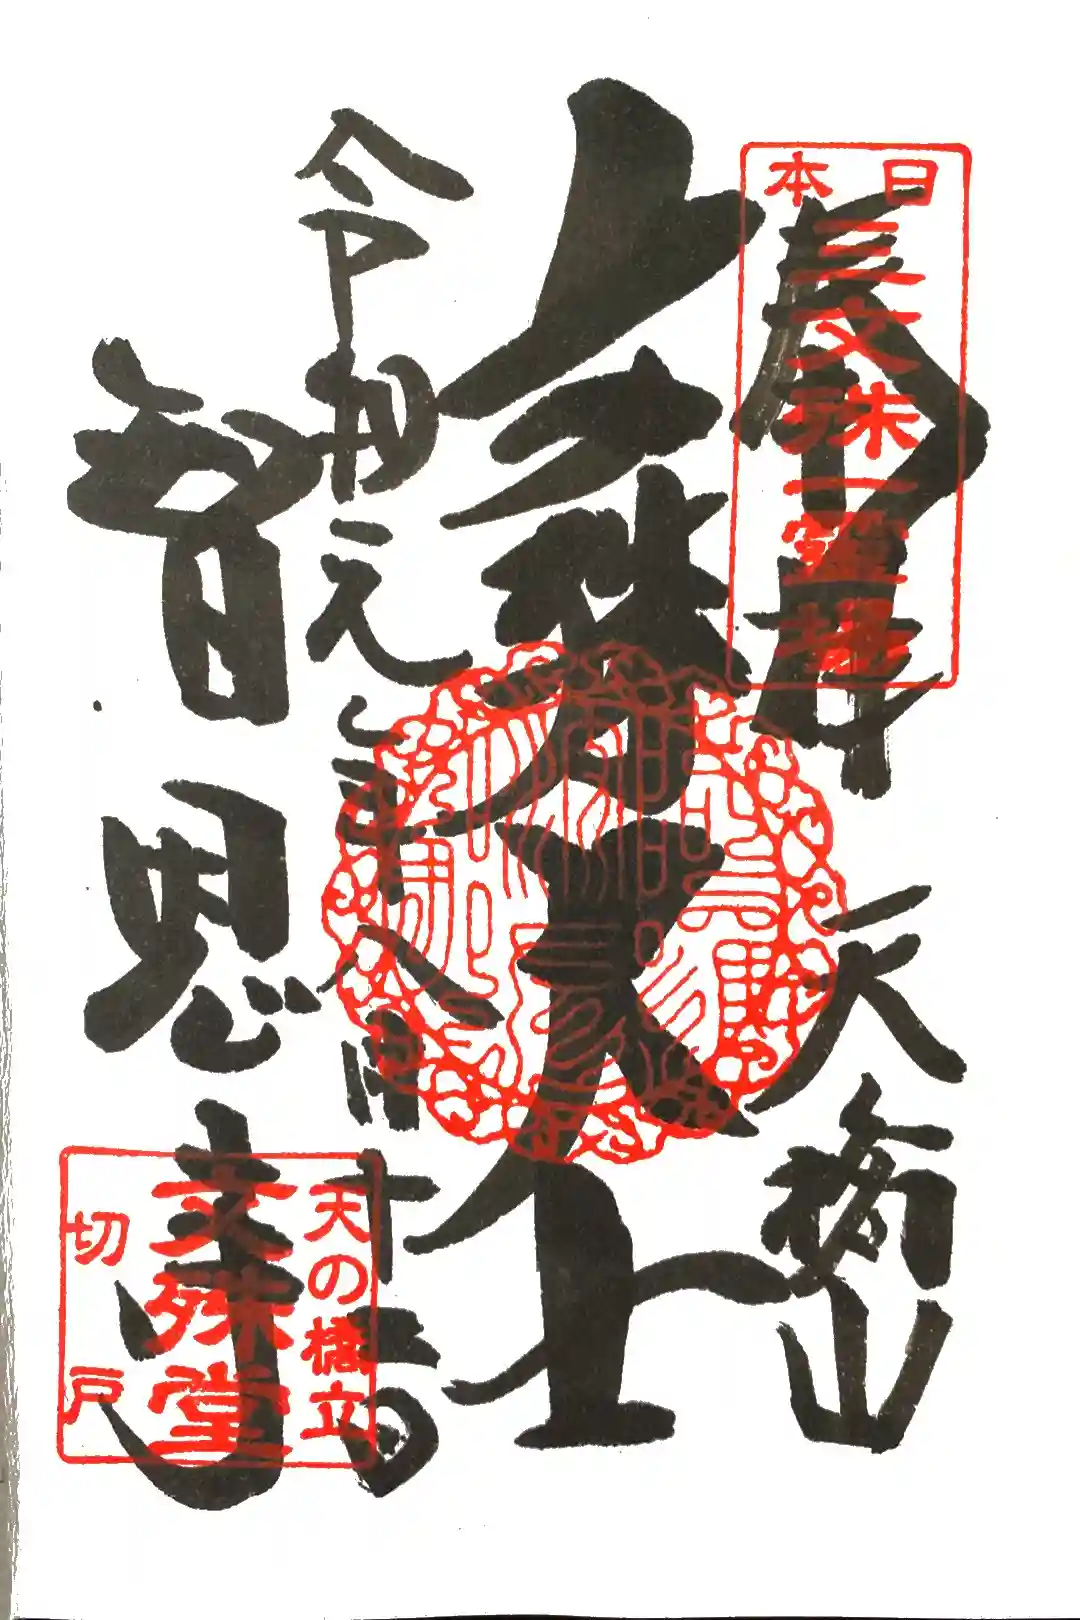 奉拝
日本
三文殊一霊場
天橋山
文殊大士
令和元年八月十
日
智恩寺
天の橋立
文殊堂
切戸